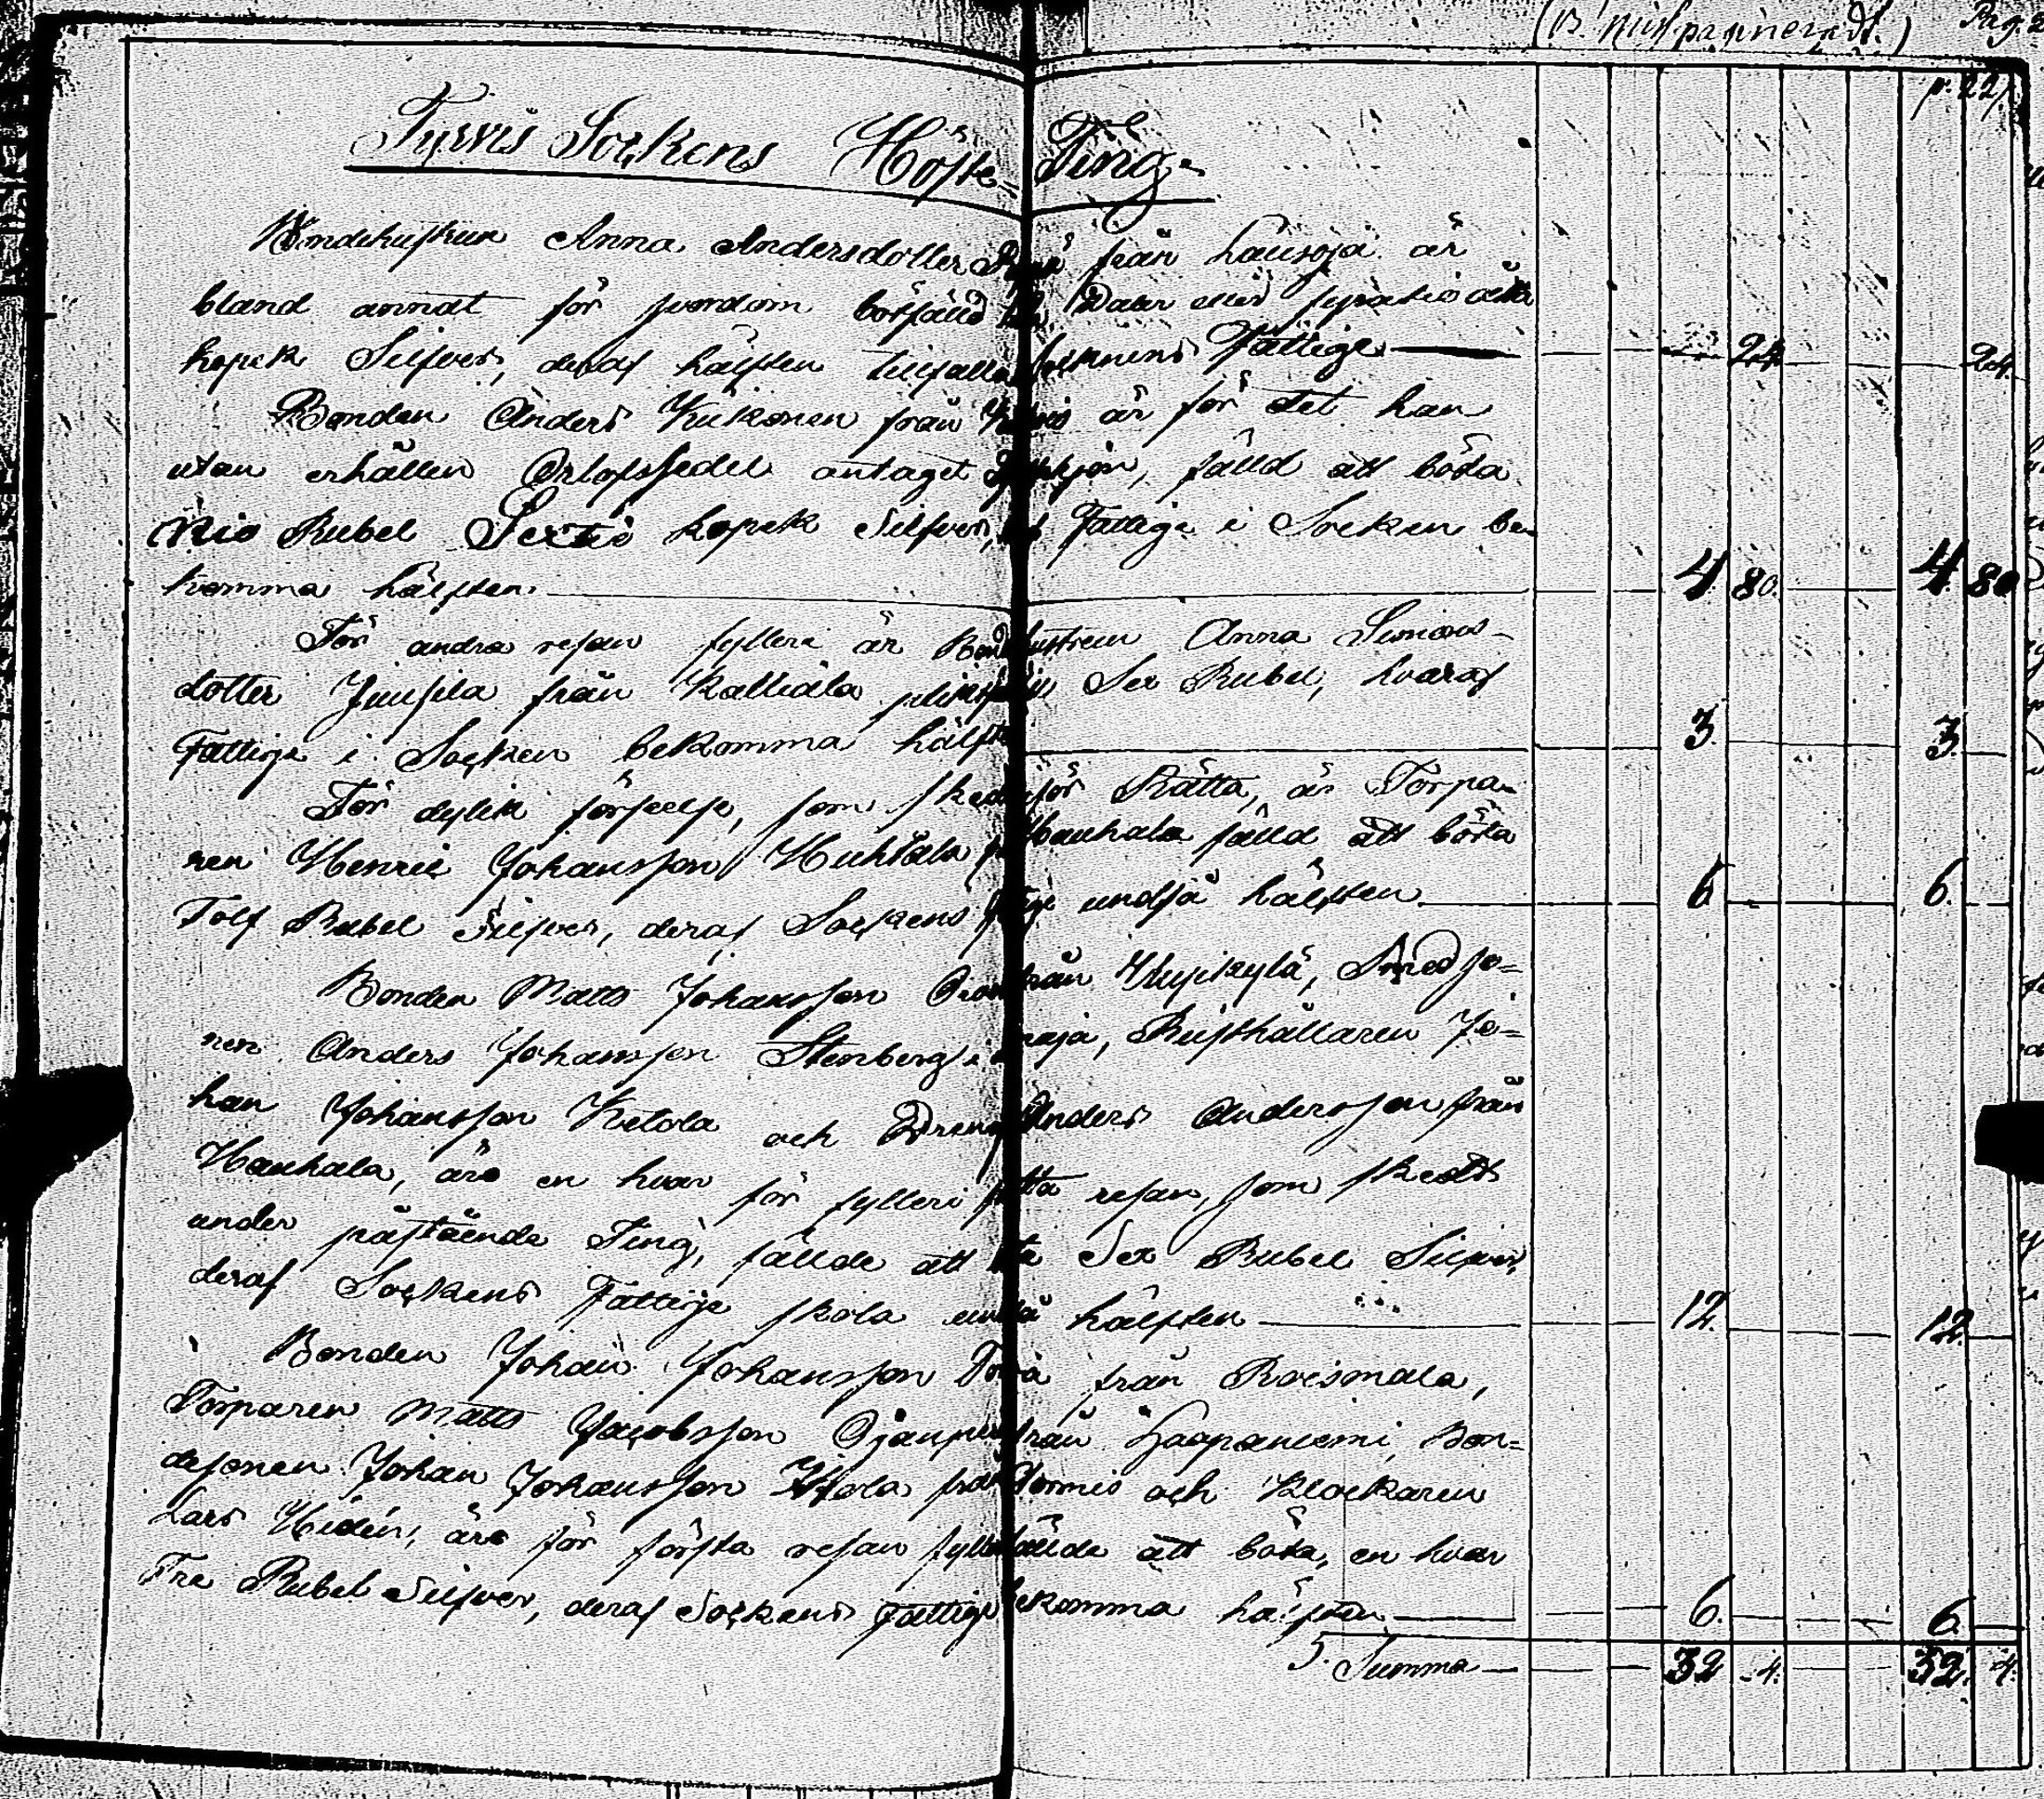 Pag. 2
p. 22
Tyrvis Sockens Höste Ting
Bondehustrun Anna Andersdotter från Lausoja är
bland annat för svordom botfälld Daler eller fyratio åtta
kopek Silfver, deraf hälften tillfalla Socknens Fattige 24 24.
Bonden Anders Kiikonen från är för det han
utan erhållen Orlofssedel antaget, fälld att böta
Nio Rubel Sextio kopek Silfver, Fattige i Socken be-
komma hälften. 4. 80. 4. 80
För andra resan fylleri är Bondhustrun Anna Simons-
dotter Juusila från Kalliala pliktfälld Sex Rubel, hvaraf
Fattige i Socken bekomma hälften 3. 3.
För dylik förseelse, som skedt för Rätta, är Torpa-
ren Henric Johansson Huhtala Hauhala fälld att böta
Tolf Rubel Silfver, deraf Sockens undfå hälften 6. 6.
Bonden Matts Johansson från, Smedso-
nen Anders Johansson Stenberg i, Rusthållaren Jo-
han Johansson Ketola och Dreng Anders Andersson från
Hauhala, äro en hvar för fylleri resan, som skedt
under påstående Ting, fällde att Sex Rubel Silfver,
deraf Sockens Fattige skola undfå hälften 12. 12.
Bonden Johan Johansson från Roismala,
Torparen Matts Jacobsson från Haapaniemi, Bon-
desonen Johan Johansson och Klockaren
Lars Hidén, äro för första resan fylleri fällde att böta, en hvar
Tre Rubel Silfver, deraf Sockens Fattige bekomma hälften 6. 6.
S. Summa 32 4. 32. 4.